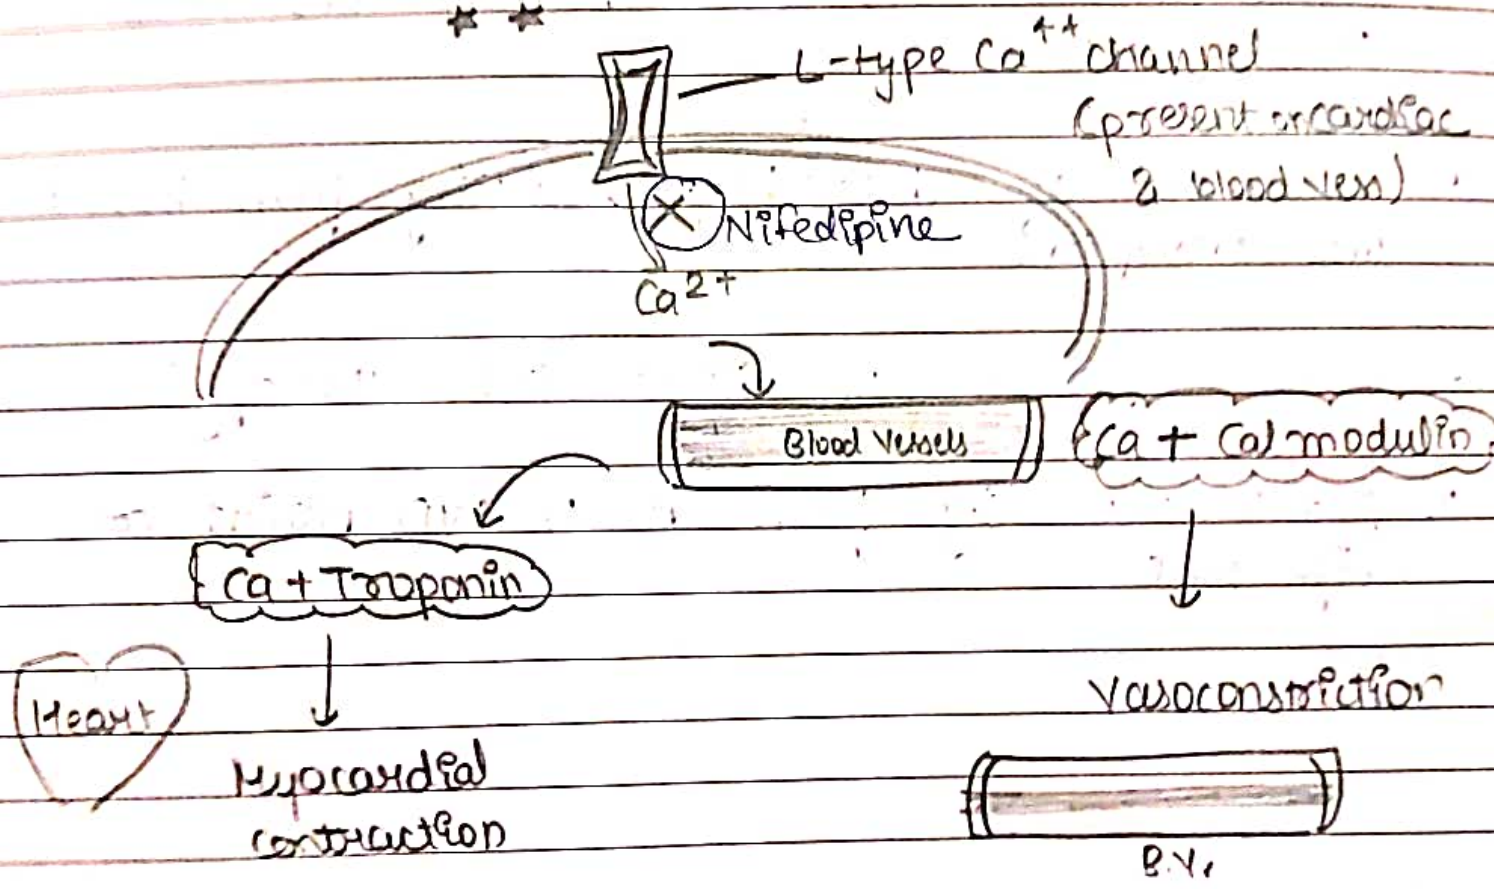 L-type Ca++ channel
(present on cardiac
& blood vess)
Nifedipine
Ca2+
Blood Vessels
Ca + Calmodulin
Ca + Troponin
Heart
Vasoconstriction
Myocardial
contraction
B.V.